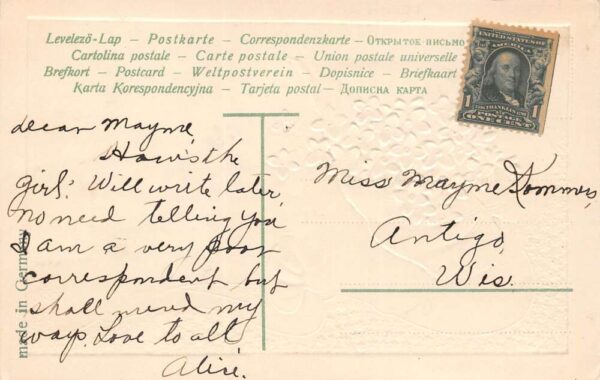 Levelező-Lap – Postkarte – Correspondenzkarte – Открыток письмо
Cartolina postale – Carte postale – Union postale universelle
Brefkort – Postcard – Weltpostverein – Dopisnice – Briefkaart
Karta Korespondencyjna – Tarjeta postal – Дописна карта
UNITED STATES OF
AMERICA
1 FRANKLIN 1
POSTAGE
ONE CENT
dear Mayme
How's the
girl? Will write later
no need telling you
I am a very poor
correspondent but
shall mend my
ways. Love to all
Alise.
Miss Mayme
Antigo,
Wis.
made in Germany